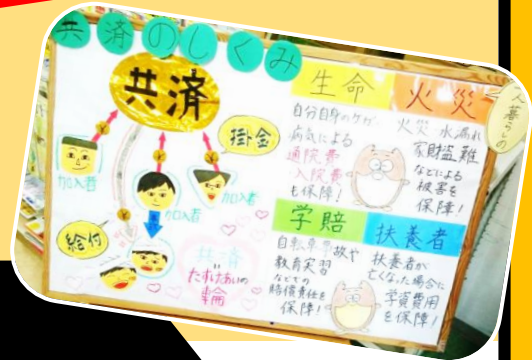 共済のしくみ
共済
掛金
加入者
加入者
加入者
給付
共済
たすけあいの
輪
生命
自分自身のケガ、
病気による
通院費
入院費
も保障！
火災
火災 水漏れ
家財盗難
などによる
被害を
保障！
学賠
自転車事故や
教育実習
などでの
賠償責任を
保障！
扶養者
扶養者が
亡くなった場合に
学資費用
を保障！
暮らしの